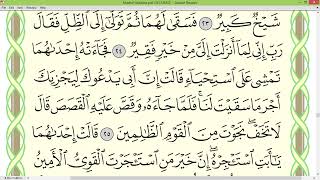 شَيْخٌ كَبِيرٌ ٢٣ فَسَقَىٰ لَهُمَا ثُمَّ تَوَلَّىٰٓ إِلَى ٱلظِّلِّ فَقَالَ
رَبِّ إِنِّى لِمَآ أَنزَلْتَ إِلَىَّ مِنْ خَيْرٍ فَقِيرٌ ٢٤ فَجَآءَتْهُ إِحْدَىٰهُمَا
تَمْشِى عَلَى ٱسْتِحْيَآءٍ قَالَتْ إِنَّ أَبِى يَدْعُوكَ لِيَجْزِيَكَ
أَجْرَ مَا سَقَيْتَ لَنَا ۚ فَلَمَّا جَآءَهُۥ وَقَصَّ عَلَيْهِ ٱلْقَصَصَ قَالَ
لَا تَخَفْ ۖ نَجَوْتَ مِنَ ٱلْقَوْمِ ٱلظَّٰلِمِينَ ٢٥ قَالَتْ إِحْدَىٰهُمَا
يَٰٓأَبَتِ ٱسْتَـْٔجِرْهُ ۖ إِنَّ خَيْرَ مَنِ ٱسْتَـْٔجَرْتَ ٱلْقَوِىُّ ٱلْأَمِينُ